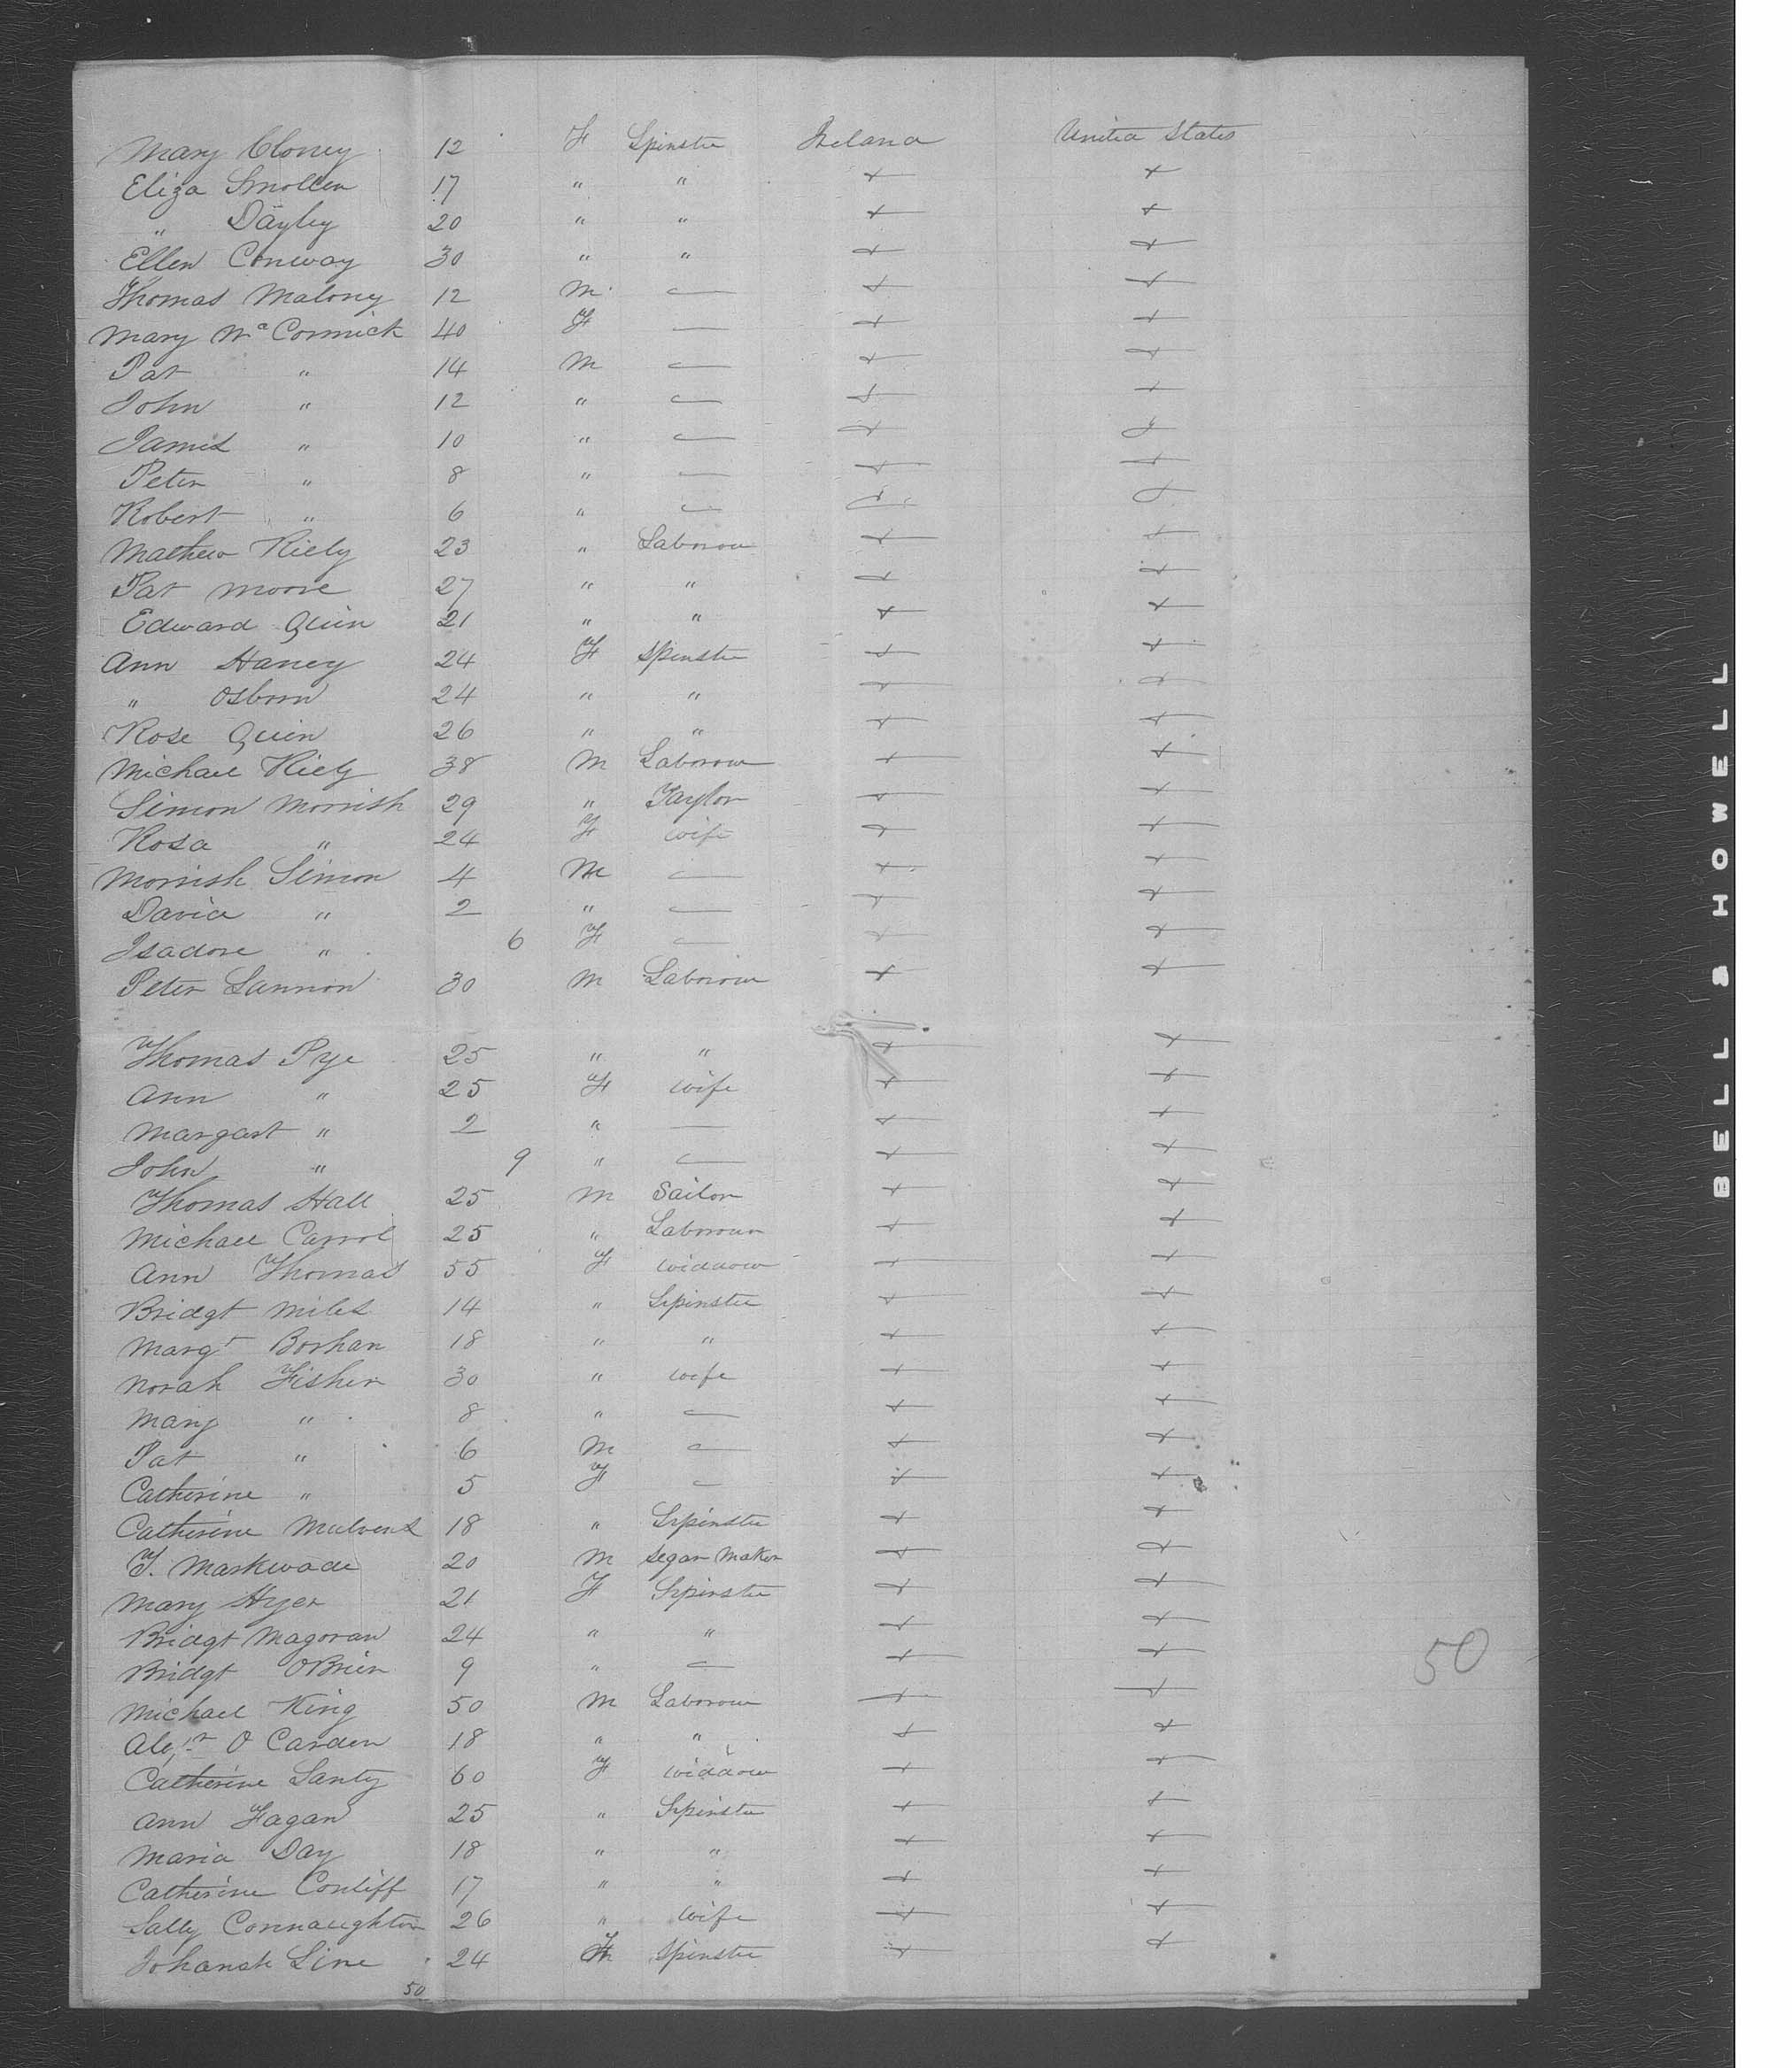 Mary Cloney 12 F Spinster Ireland United States
Eliza Smollen 17 " " + +
" Dayley 20 " " + +
Ellen Conway 30 " " + +
Thomas Malony 12 M — + +
Mary McCormick 40 F — + +
Pat " 14 M — + +
John " 12 " — + +
James " 10 " — + +
Peter " 8 " — + +
Robert " 6 " — + +
Mathew Kiely 23 " Laborour + +
Pat Moore 27 " " + +
Edward Quin 21 " " + +
Ann Haney 24 F Spinster + +
" Osborn 24 " " + +
Rose Quin 26 " " + +
Michael Kiely 38 M Laborour + +
Simon Morrish 29 " Taylor + +
Rosa " 24 F wife + +
Morrish Simon 4 M — + +
David " 2 " — + +
Isadore " 6 F — + +
Peter Lannon 30 M Laborour + +
Thomas Pye 25 " " + +
Ann " 25 F wife + +
Margart " 2 " — + +
John " 9 " — + +
Thomas Hall 25 M Sailor + +
Michael Carrol 25 " Laborour + +
Ann Thomas 55 F widdow + +
Bridgt Miles 14 " Spinster + +
Margt Borhan 18 " " + +
Norah Fisher 30 " wife + +
Mary " 8 " — + +
Pat " 6 M — + +
Catherine " 5 F — + +
Catherine 18 " Spinster + +
T. Markwade 20 M Segar Maker + +
Mary Hyer 21 F Spinster + +
Bridgt Magoran 24 " " + +
Bridgt OBrien 9 " — + + 50
Michael King 50 M Laborour + +
Alexr O Carden 18 " " + +
Catherine Lanty 60 F widdow + +
Ann Fagan 25 " Spinster + +
Maria Day 18 " " + +
Catherine Conliff 17 " " + +
Sally Connaughton 26 " wife + +
Johanah Line 24 F Spinster + +
50
BELL & HOWELL